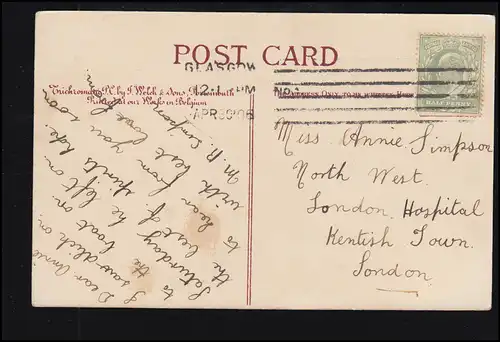 POST CARD
GLASGOW
12.1 PM
APR 30 06
No. 1
Trichromatic P.C. by J. Welch & Sons, Portsmouth
Printed at our Works in Belgium
ADDRESS ONLY TO BE WRITTEN HERE
HALF PENNY
Miss Annie Simpson
North West
London Hospital
Kentish Town.
London.
Dear Annie
I saw Jack on
to the boat on
Saturday he left in
the best of spirits hope
to hear from you soon
with best love from
M. B. Simpson